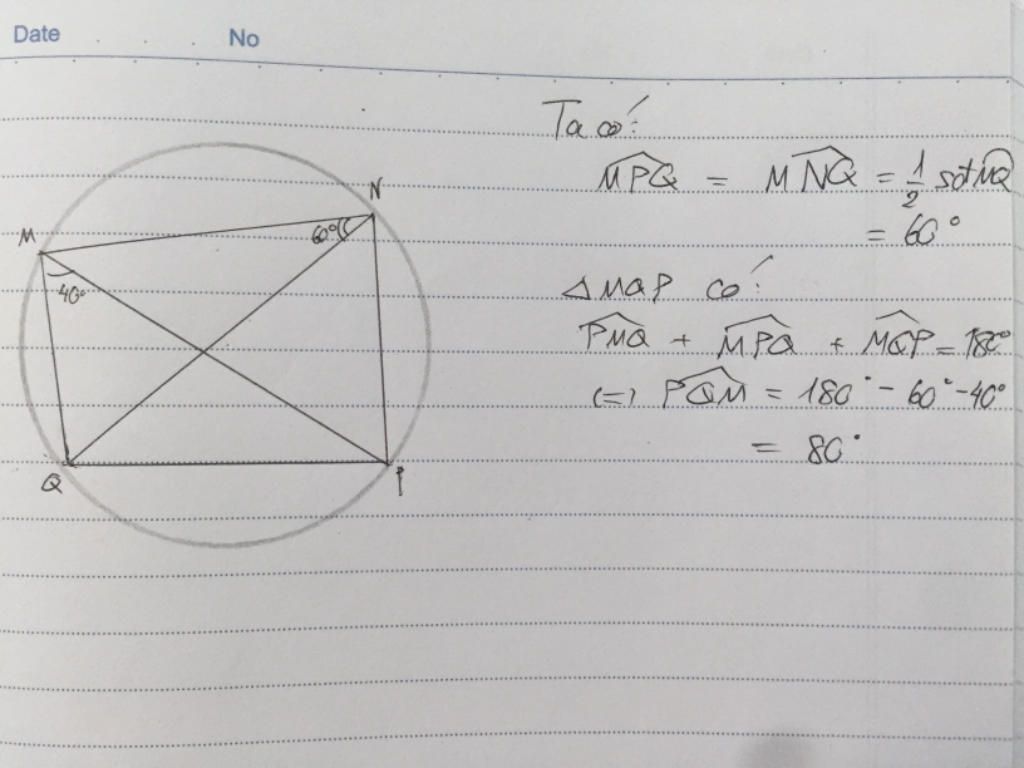 Date No
M
N
60°
40°
Q
P
Ta có:
$\widehat{MPQ}$ = $\widehat{MNQ}$ = $\frac{1}{2}$ sđ $\overset{\frown}{MQ}$
= 60°
△MQP có:
$\widehat{PMQ}$ + $\widehat{MPQ}$ + $\widehat{MQP}$ = 180°
(=) $\widehat{PQM}$ = 180° - 60° - 40°
= 80°